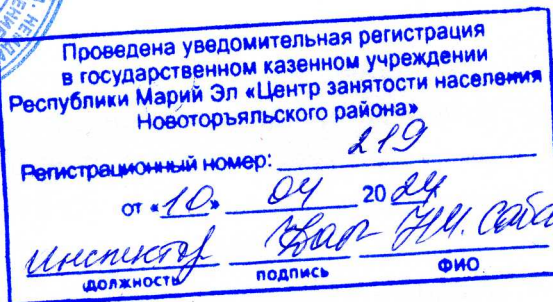 Проведена уведомительная регистрация
в государственном казенном учреждении
Республики Марий Эл «Центр занятости населения
Новоторъяльского района»
Регистрационный номер: 219
от «10» 04 2024
инспектор Н.М.
должность подпись ФИО